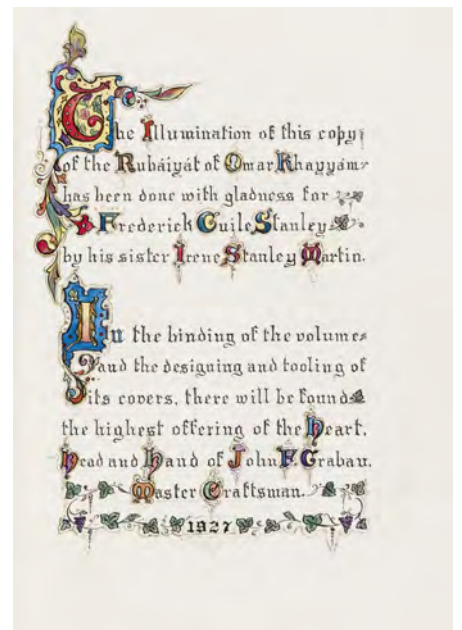 The Illumination of this copy
of the Rubáiyát of Omar Khayyám
has been done with gladness for
Frederick Guile Stanley
by his sister Irene Stanley Martin.
In the binding of the volume
and the designing and tooling of
its covers, there will be found
the highest offering of the Heart,
Head and Hand of John F. Grabau.
Master Craftsman.
1927